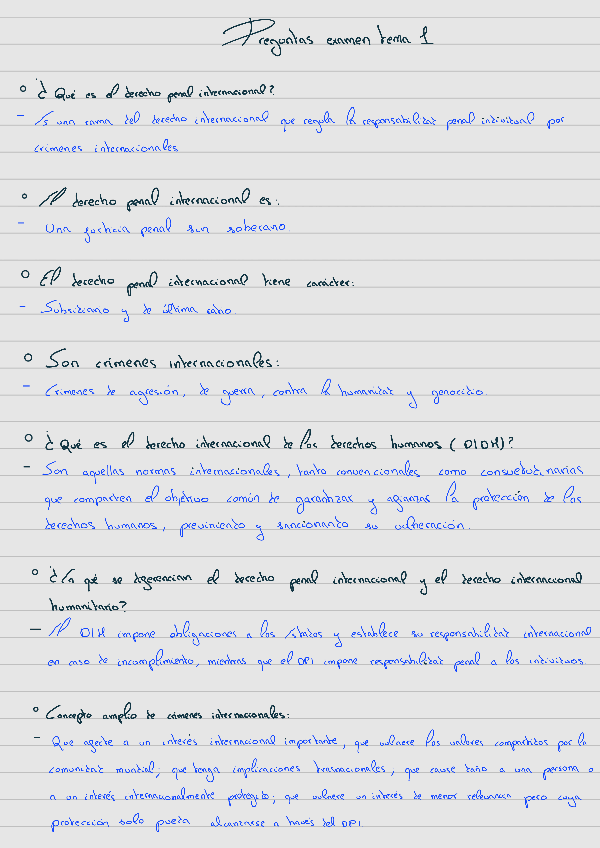 Preguntas examen tema 1
¿Qué es el derecho penal internacional?
- Es una rama del derecho internacional que regula la responsabilidad penal individual por
crímenes internacionales
El derecho penal internacional es:
- Una justicia penal sin soberano.
El derecho penal internacional tiene carácter:
- Subsidiario y de última ratio.
Son crímenes internacionales:
- Crímenes de agresión, de guerra, contra la humanidad y genocidio.
¿Qué es el derecho internacional de los derechos humanos (DIDH)?
- Son aquellas normas internacionales, tanto convencionales como consuetudinarias
que comparten el objetivo común de garantizar y afianzar la protección de los
derechos humanos, previniendo y sancionando su vulneración.
¿En qué se diferencian el derecho penal internacional y el derecho internacional
humanitario?
- El DIH impone obligaciones a los Estados y establece su responsabilidad internacional
en caso de incumplimiento, mientras que el DPI impone responsabilidad penal a los individuos.
Concepto amplio de crímenes internacionales:
- Que afecte a un interés internacional importante, que vulnere los valores compartidos por la
comunidad mundial; que tenga implicaciones trasnacionales, que cause daño a una persona o
a un interés internacionalmente protegido; que vulnere un interés de menor relevancia pero cuya
protección solo pueda alcanzarse a través del DPI.